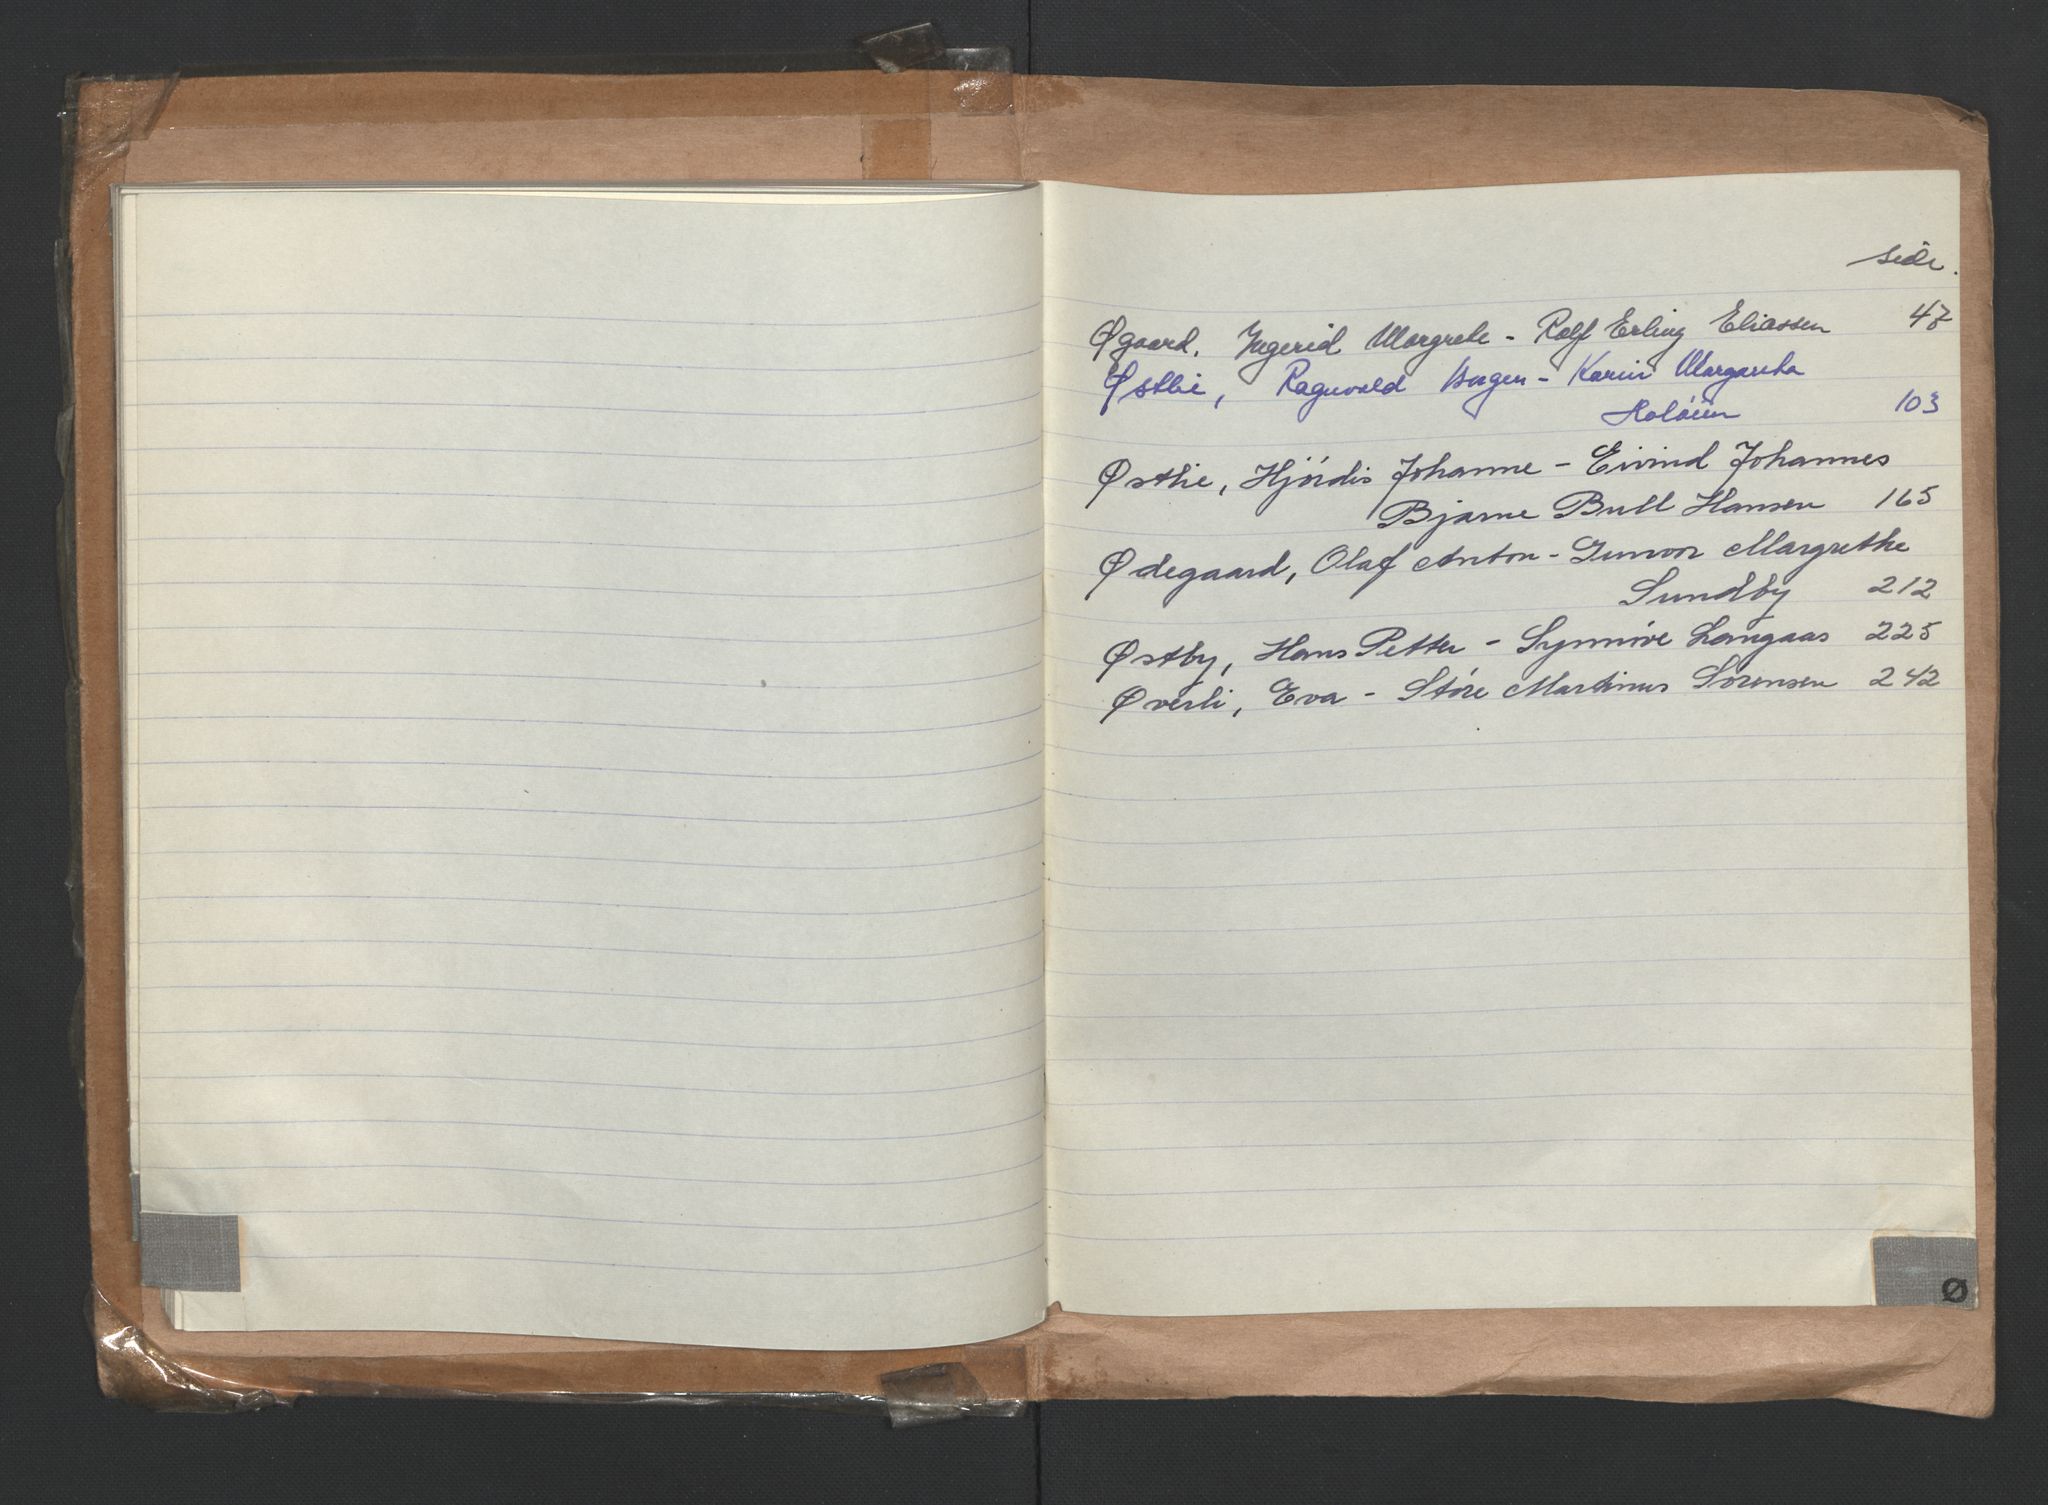 side.
Øgaard, Ingerid Margrete - Rolf Erling Eliassen 47
Østbie, Ragnvald - Karin Margareta
103
Østlie, Hjördis Johanne - Eivind Johannes
Bjarne Bull Hansen 165
Ødegaard, Olaf Anton - Gunvor Margrethe
Sundby 212
Østby, Hans Petter - Synnöve Langaas 225
Øverli, Eva - Störe Martinus Sörensen 242
Ø